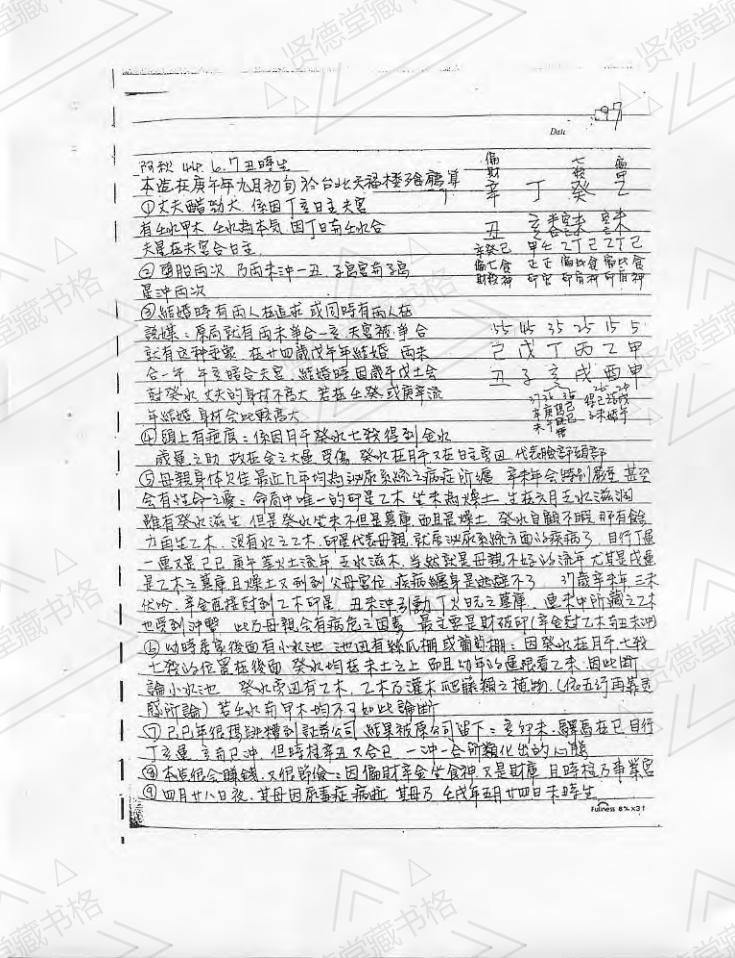 97
Date
阿秋 44.6.7丑時生
本造在庚午年九月初旬於台北天福樓
偏財 七殺 偏印
辛 丁 癸 乙
丑 亥 未 未
①丈夫醋勁大,係因丁亥日主夫宮
有壬水甲木,壬水為本氣,因丁日与壬水合
夫星在夫宮合日主
辛癸己 甲壬 乙丁己 乙丁己
②墮胎兩次,乃兩未沖一丑,子宮
星沖兩次
③結婚時有兩人在追求或同時有兩人在
說媒:原局就有兩未爭合一亥,夫宮被爭合
就有这种一年結婚,兩未
合一午,午亥暗合夫宮,結婚時因歲午戊土会
尅癸水,丈夫的身材不高大,若在壬癸或庚辛流
年結婚,身材会比較高大
55 45 35 25 15 5
己 戊 丁 丙 乙 甲
丑 子 亥 戌 酉 申
④頭上有疤痕:係因月干癸水七殺得到金水
歲運之助,故在金之大運受傷,癸水在月干又在日主旁边,代表臉部頭部
⑤母親身体欠佳,最近几年均為泌尿系統之病症所纏,辛未年会特別嚴重,甚至
会有性命之憂:命局中唯一的印星乙木,坐未為燥土,生在六月乏水滋潤
雖有癸水滋生,但是癸水坐未不但是墓庫,而且是燥土,癸水自顧不暇,那有餘
力再生乙木,沒有水之乙木,印星代表母親,就属泌尿系統方面的疾病了,目行丁運
又是己巳庚午等火土流年,乏水滋木,当然就是母親不好的流年,尤其是戌運
是乙木之墓庫且燥土又刑到父母宮位,疾病纏身是逃避不了,37歲辛未年三未
伏吟,辛会直接尅到乙木印星,丑未沖引動丁火日元之墓庫,連未中所藏之乙木
也受到沖擊,此乃母親会有病危之因素,最主要是財破印(辛金尅乙木,丑未沖)
⑥幼時居家後面有小水池,池边有絲瓜棚或葡萄棚:因癸水在月干七殺
七殺的位置在後面,癸水均在未土之上,而且幼年的運限看乙未,因此斷
論小水池,癸水旁边有乙木,乙木乃灌木爬藤類之植物(依五行再靠灵
感所論)若壬水与甲木均不可如此論斷
⑦己巳年很想跳槽到証券公司,結果被原公司留下:亥卯未,驛馬在巳,目行
丁亥運,亥与巳沖,但時柱辛丑又合巳,一沖一合所類化出的心態
⑧本造很会賺錢,又很節儉:因偏財辛金坐食神,又是財庫,且時柱乃事業宮
⑨四月廿八日夜,其母因尿毒症病逝,其母乃壬戌年五月廿四日未時生
Fullness 8½×31
贤德堂藏书格